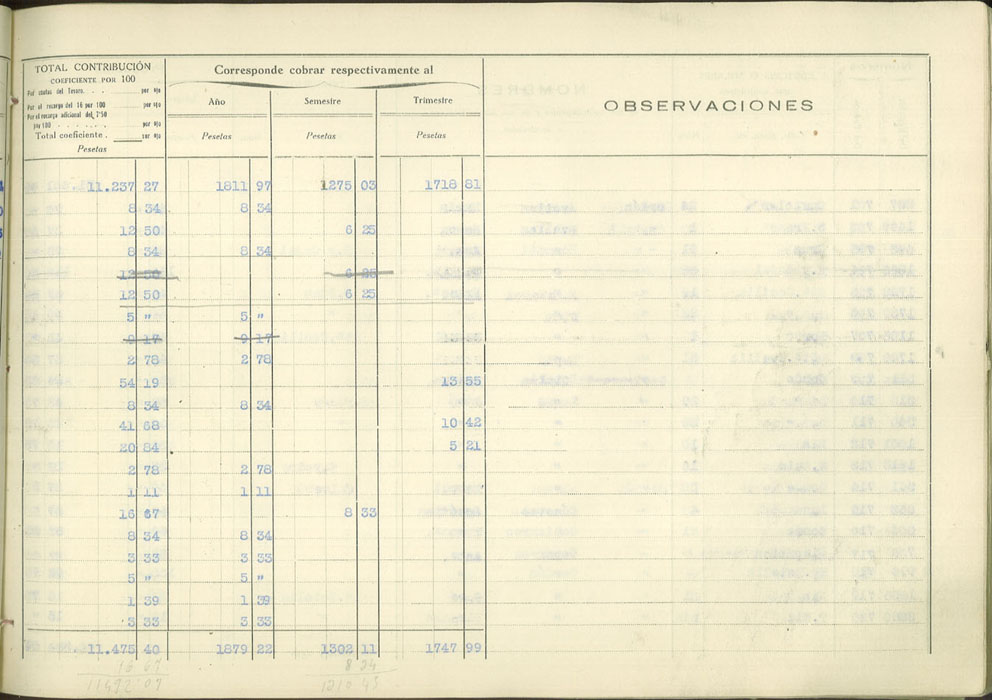 TOTAL CONTRIBUCIÓN
COEFICIENTE POR 100
Por cuotas del Tesoro. . . por 010
Por el recargo del 16 por 100 por 010
Por el recargo adicional del 7'50
por 100 . . . . . . por 010
Total coeficiente . por 010
Pesetas
Corresponde cobrar respectivamente al
Año Semestre Trimestre
Pesetas Pesetas Pesetas
OBSERVACIONES
11.237 27 1811 97 1275 03 1718 81
8 34 8 34
12 50 6 25
8 34 8 34
12 50 6 25
12 50 6 25
5 " 5 "
9 17 9 17
2 78 2 78
54 19 13 55
8 34 8 34
41 68 10 42
20 84 5 21
2 78 2 78
1 11 1 11
16 67 8 33
8 34 8 34
3 33 3 33
5 " 5 "
1 39 1 39
3 33 3 33
11.475 40 1879 22 1302 11 1747 99
16 67 8 34
11492 07 1310 45